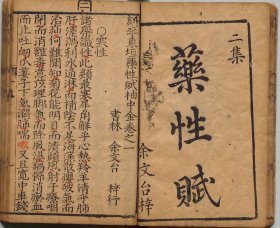 二集
藥性賦
余文台梓
刻李東垣藥性賦袖中金卷之一
書林 余文台 梓行
○寒性
諸藥識性此類最寒犀角解乎心熱羚羊清乎肺
肝澤瀉利水通淋而補陰不足海藻散癭破氣而
治疝何難聞知菊花能明目而清頭風射干療咽
閉而消癰毒薏苡理脚氣而除風濕藕節消瘀血
而止吐衂瓜蔞子下氣潤肺喘兮又且寛中車前